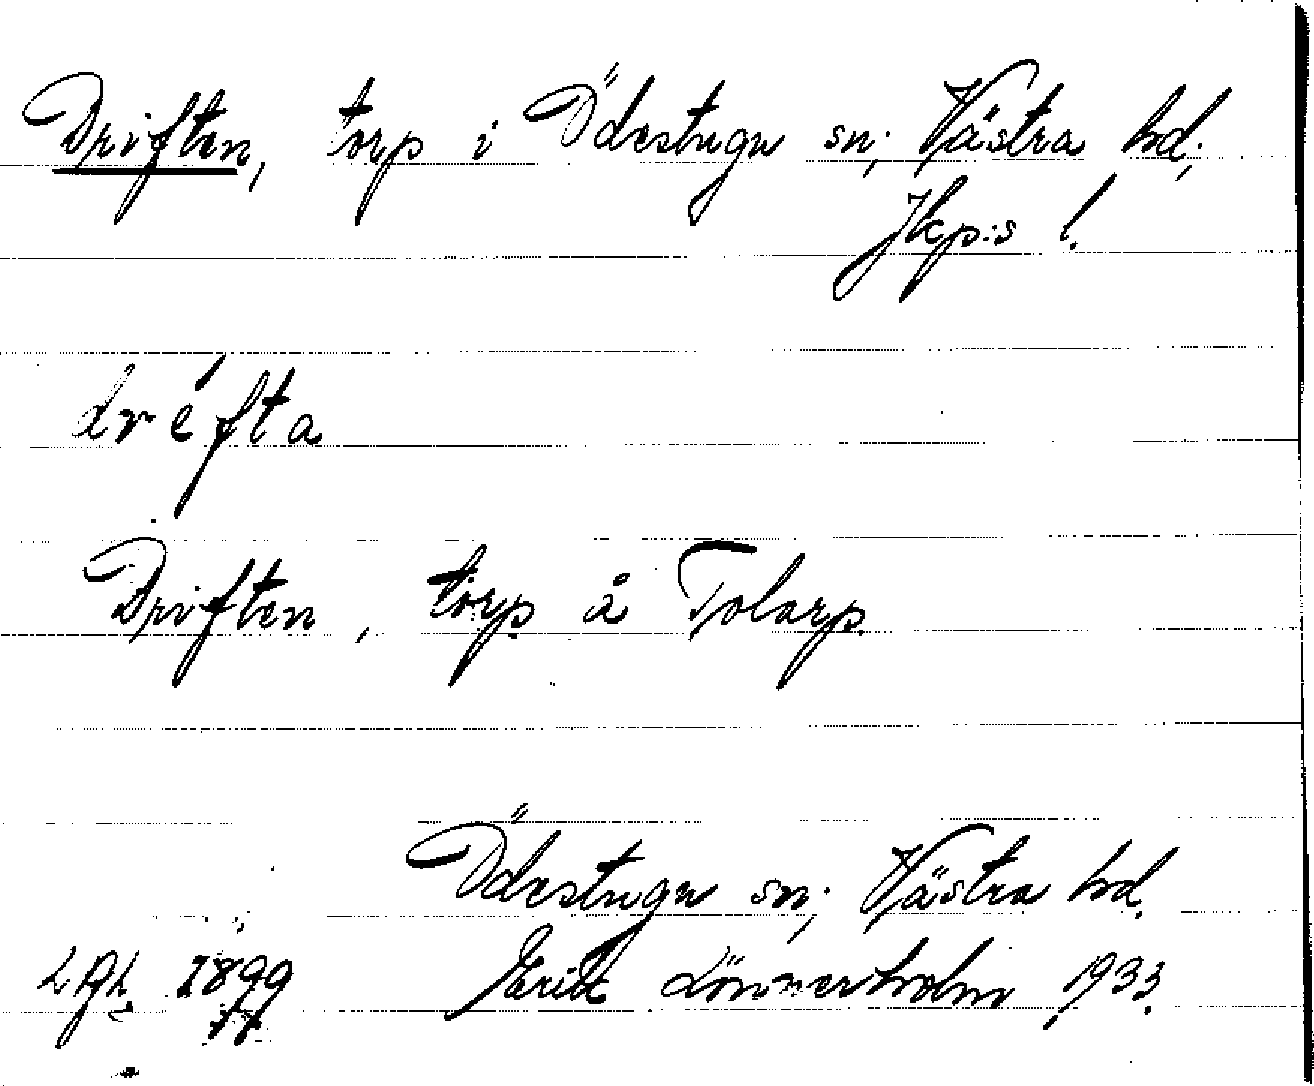 Driften, torp i Ödestugu sn; Västra hd;
Jkp:s l.
dréfta
Driften, torp å Tolarp.
Ödestugu sn; Västra hd.
1899 Erik Lönnerholm 1933.